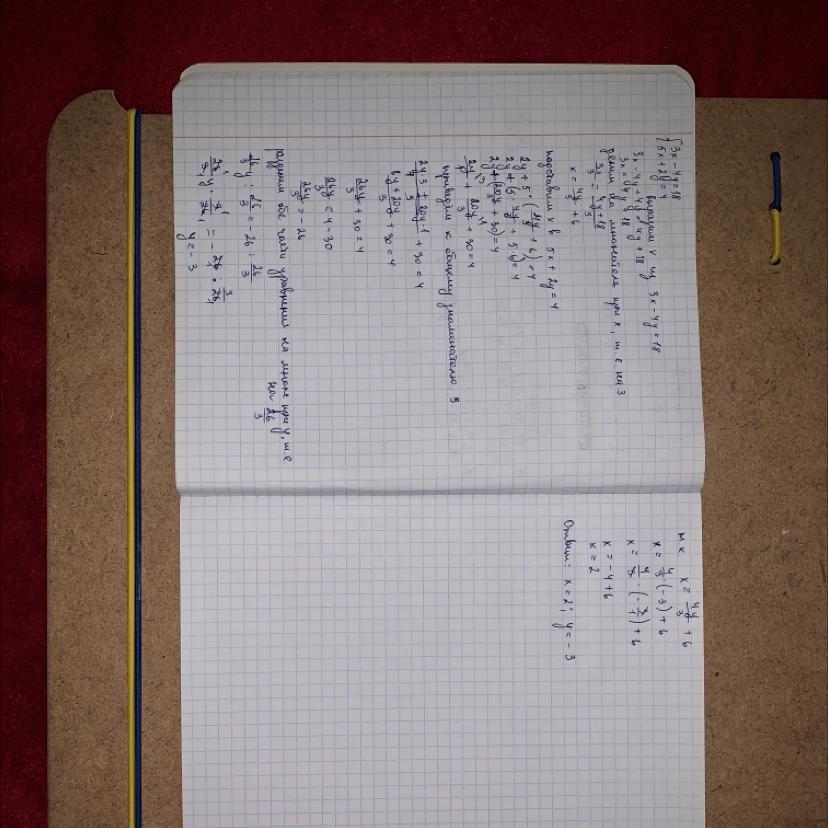 3x - 4y = 18
5x + 2y = 4
Выразим x из 3x - 4y = 18
3x - 4y + 4y = 4y + 18
3x = 4y + 18
делим на множитель при x, т. е. на 3
3x/3 = 4y + 18/3
x = 4y/3 + 6
подставим x в 5x + 2y = 4
2y + 5 · (4y/3 + 6) = 4
2y + (5 · 4y/3 + 5 · 6) = 4
2y + (20y/3 + 30) = 4
2y/1 + 20y/3 + 30 = 4
приведём к общему знаменателю 3
2y · 3 + 20y · 1/3 + 30 = 4
6y + 20y/3 + 30 = 4
26y/3 + 30 = 4
26y/3 = 4 - 30
26y/3 = -26
разделим обе части уравнения на множ при y, т. е.
на 26/3
26/3 y : 26/3 = -26 : 26/3
26/3 y · 3/26 = - 26/1 · 3/26
y = - 3
т к x = 4y/3 + 6
x = 4/3 · (-3) + 6
x = 4/3 · (- 3/1) + 6
x = - 4 + 6
x = 2
Ответ: x = 2; y = - 3